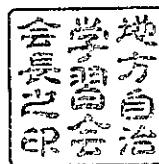 地方自治
学習会
会長之印